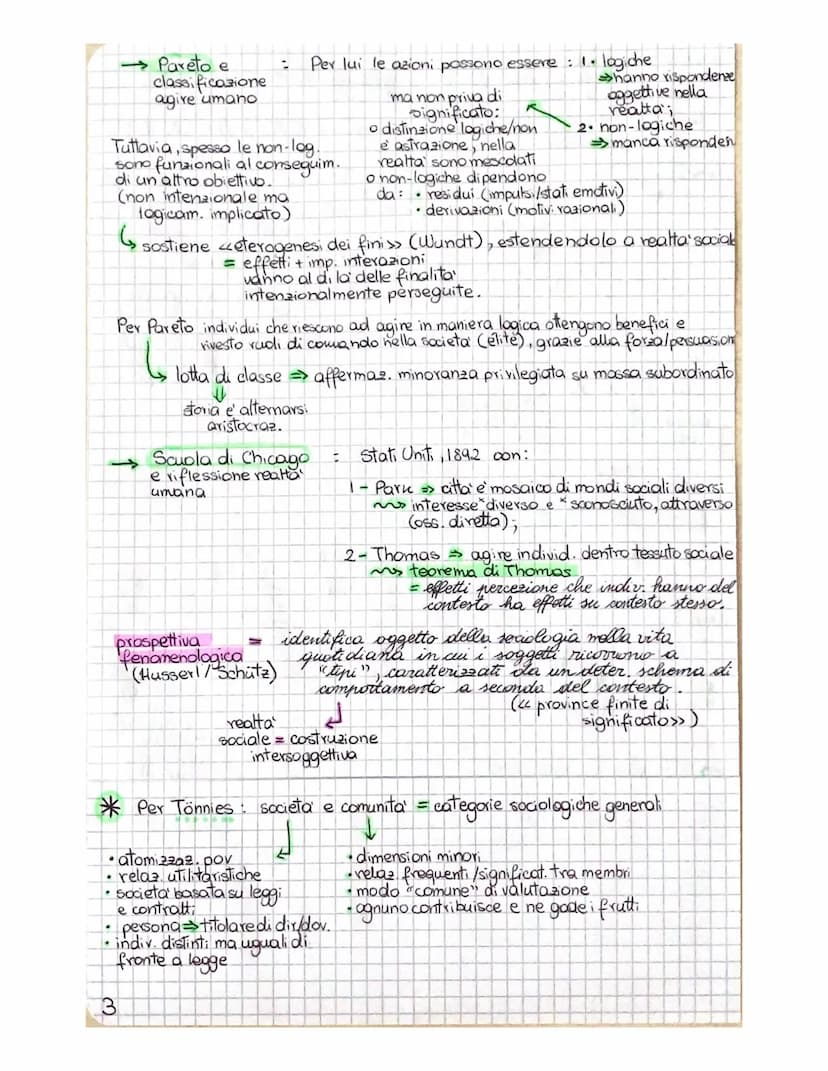 → Pareto e : Per lui le azioni possono essere : 1• logiche
classificazione ⇒ hanno rispondenze
agire umano oggettive nella
realta';
2• non-logiche
⇒ manca risponden
ma non priva di
significato:
o distinzione logiche/non
e' astrazione, nella
realta' sono mescolati
o non-logiche dipendono
da: • residui (impulsi/stati emotivi)
• derivazioni (motivi razionali)
Tuttavia, spesso le non-log.
sono funzionali al conseguim.
di un altro obiettivo.
(non intenzionale ma
logicam. implicato)
↳ sostiene <<eterogenesi dei fini>> (Wundt), estendendolo a realta' social
= effetti + imp. interazioni
vanno al di la' delle finalita'
intenzionalmente perseguite.
Per Pareto individui che riescono ad agire in maniera logica ottengono benefici e
rivesto ruoli di comando nella societa' (élite), grazie alla forza/persuasion
↳ lotta di classe ⇒ affermaz. minoranza privilegiata su massa subordinato
⇓
storia e' alternarsi
aristocraz.
→ Scuola di Chicago : Stati Uniti, 1892 con:
e riflessione realta'
umana
1 - Park ⇒ citta' e' mosaico di mondi sociali diversi
⇝ interesse *diverso e *sconosciuto, attraverso
(oss. diretta);
2 - Thomas ⇒ agire individ. dentro tessuto sociale
⇝ teorema di Thomas
= effetti percezione che indiv. hanno del
contesto ha effetti su contesto stesso.
prospettiva = identifica oggetto della sociologia nella vita
fenomenologica quotidiana in cui i soggetti ricorrono a
(Husserl/Schütz) "tipi", caratterizzati da un deter. schema di
comportamento a seconda del contesto.
(<< province finite di
significato>>)
realta'
sociale = costruzione
intersoggettiva
* Per Tönnies : societa' e comunita' = categorie sociologiche generali
• atomizzaz. pov
• relaz. utilitaristiche
• societa' basata su leggi
e contratti
• persona ⇒ titolare di dir/dov.
• indiv. distinti ma uguali di
fronte a legge
• dimensioni minori
• relaz frequenti/significat. tra membri
• modo "comune" di valutazione
• ognuno contribuisce e ne gode i frutti
3